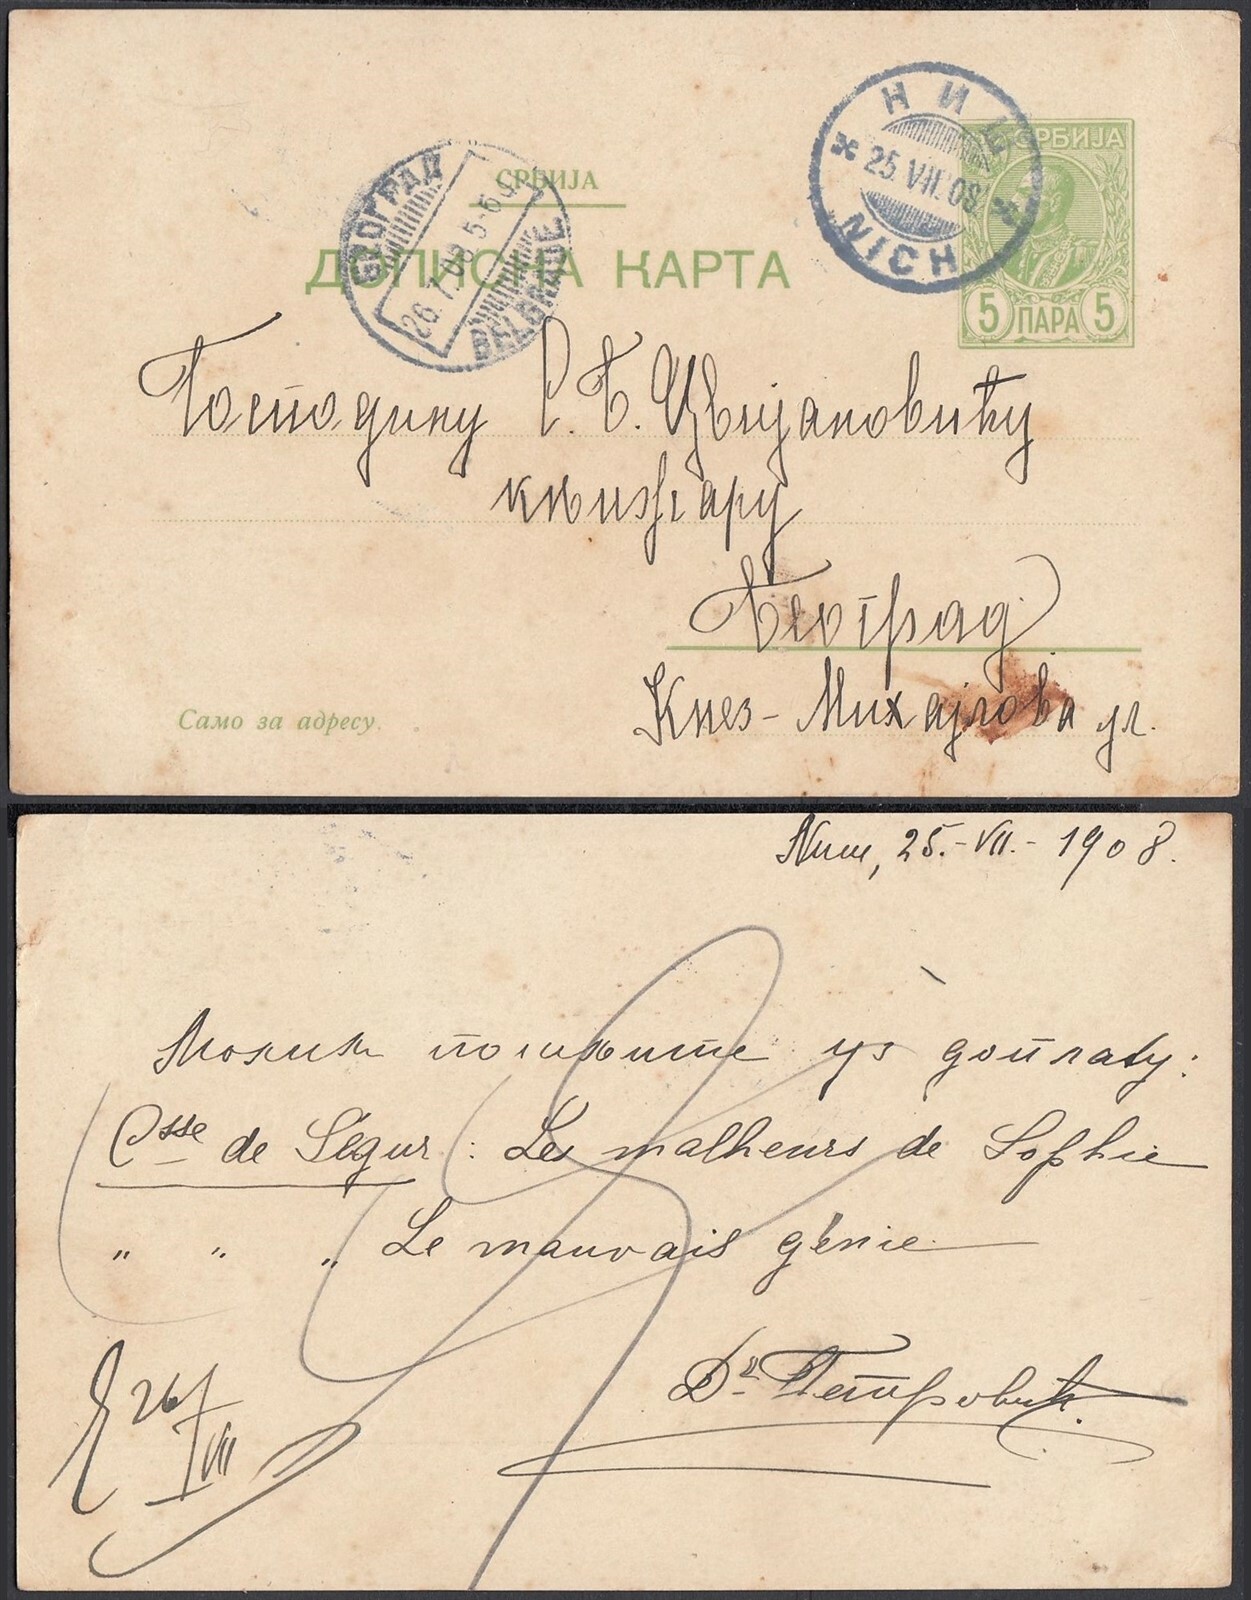 НИШ
25.VII.08
NICH
СРБИЈА
5 ПАРА 5
БЕОГРАД
26.7.08.5-6
BELGRADE
СРБИЈА
ДОПИСНА КАРТА
Господину С. Б. Цвијановићу
књижару
Београд
Кнез-Михајлова ул.
Само за адресу.
Ниш, 25.-VII.-1908.
Молим пошљите уз доплату:
Csse de Ségur: Les malheurs de Sophie
" " " Le mauvais génie
Dr Петровић.
26/VII